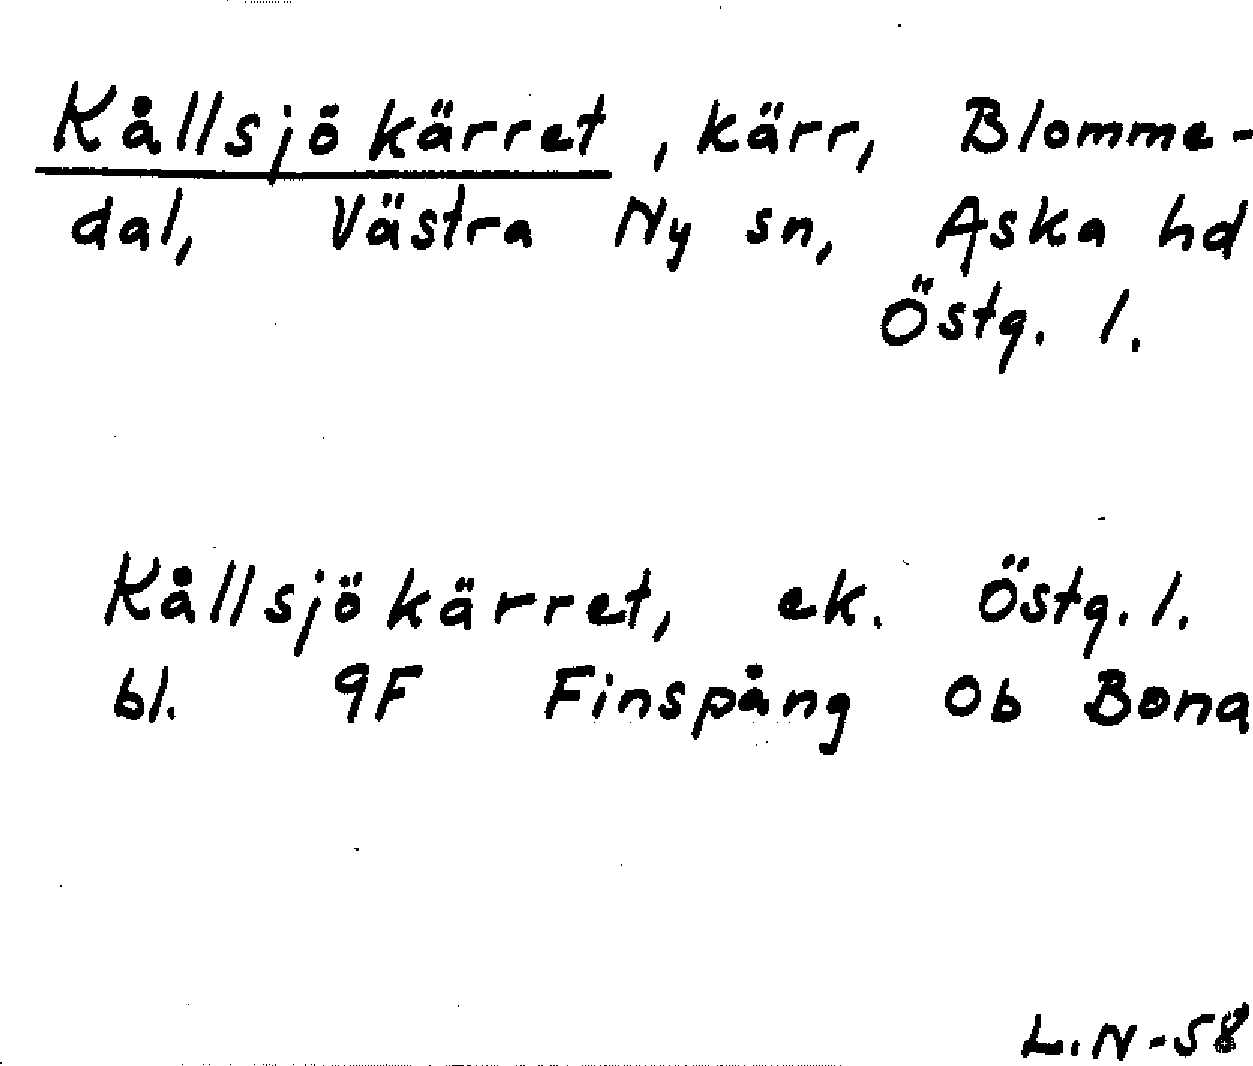 Kållsjökärret, kärr, Blomme-
dal, Västra Ny sn, Aska hd
Östg. l.
Kållsjökärret, ek. Östg. l.
bl. 9F Finspång 0b Bona
L.N-58